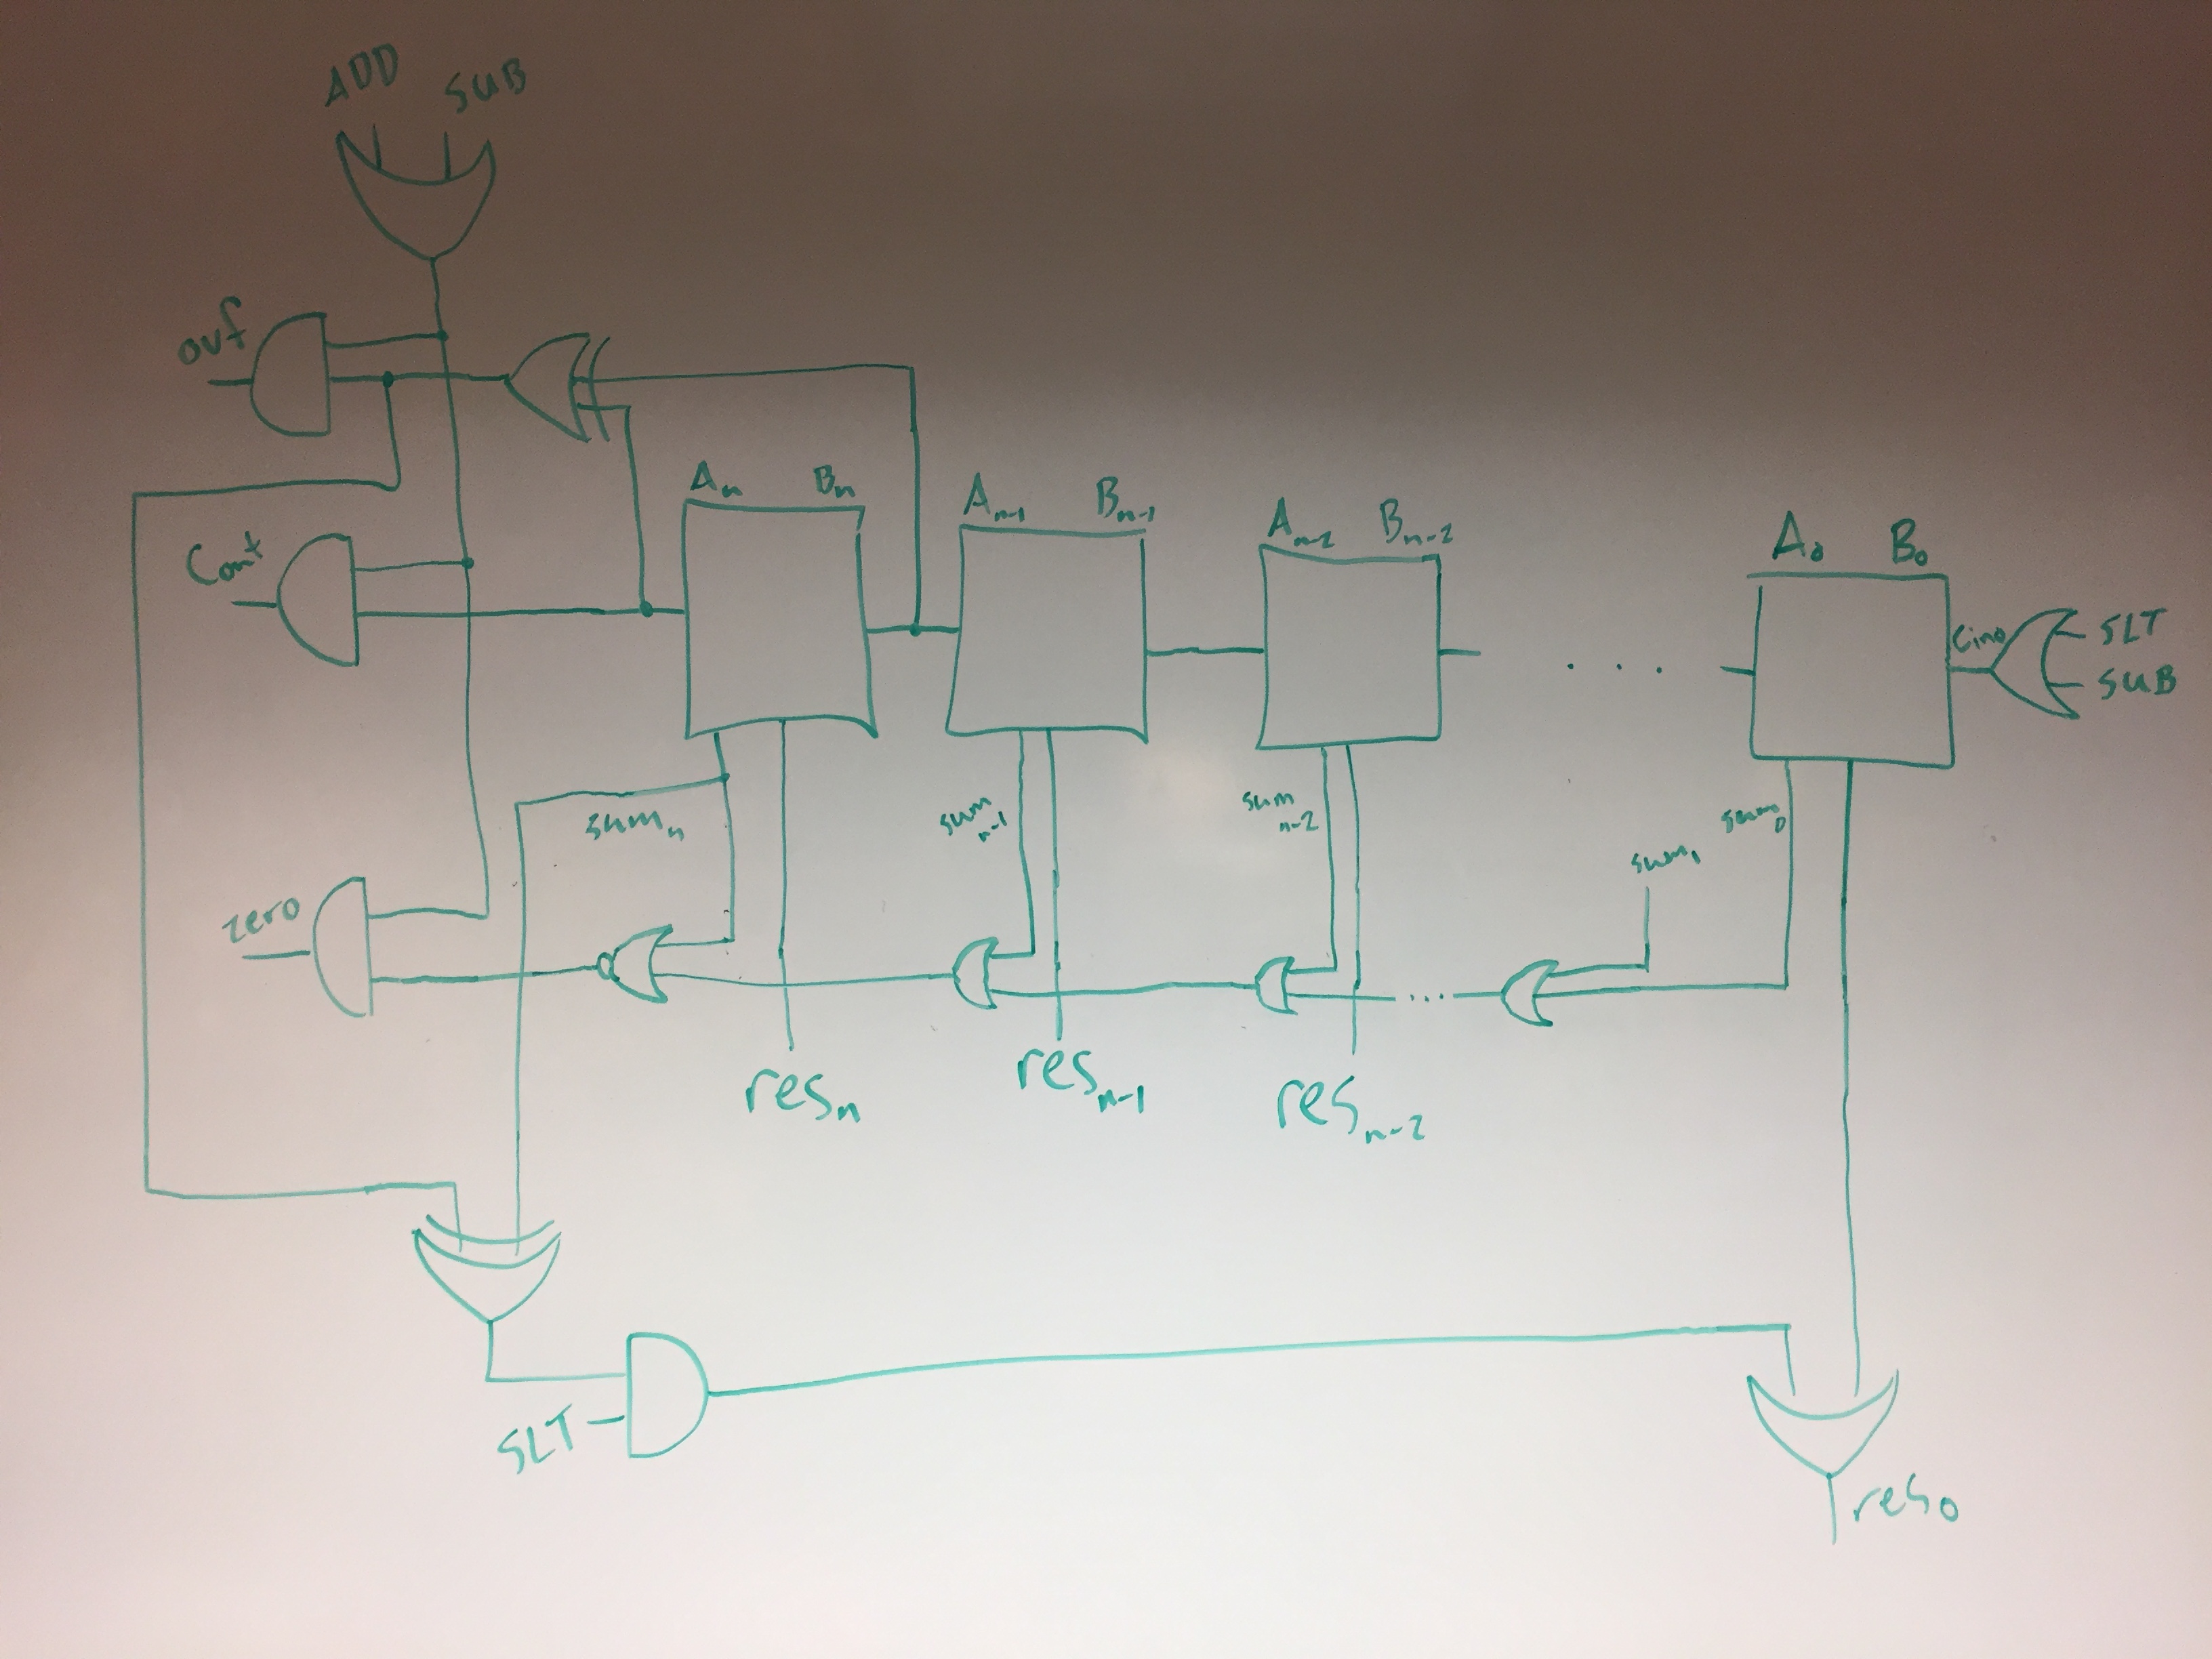 ADD SUB
ovf
Cout
An Bn
An-1 Bn-1
An-2 Bn-2
A0 B0
Cin0
SLT
SUB
sumn
sumn-1
sumn-2
sum1
sum0
zero
resn
resn-1
resn-2
....
...
SLT
res0